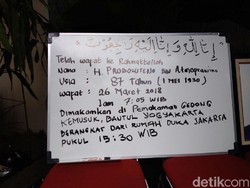 إنا لله وإنا إليه راجعون
Telah wafat ke Rahmatullah
Nama : H. PROBOSUTEDJO bin Atmoprawiro
Usia : 87 Tahun (1 MEI 1930)
wafat : 26 Maret 2018
Jam 7:05 WIB
Dimakamkan di Pemakaman GEDONG
KEMUSUK, BANTUL YOGYAKARTA
BERANGKAT DARI RUMAH DUKA JAKARTA
PUKUL 15:30 WIB
detikcom